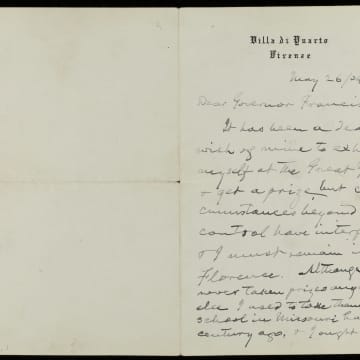 Villa di Quarto
Firenze
May 26/04
Dear Governor Francis
It has been a dear
wish of mine to exh
myself at the Great
& get a prize, but c
cumstances beyond
control have inter
& I must remain i
Florence. Although
never taken prizes any
else I used to take them
school in Missouri ha
century ago, & I ought